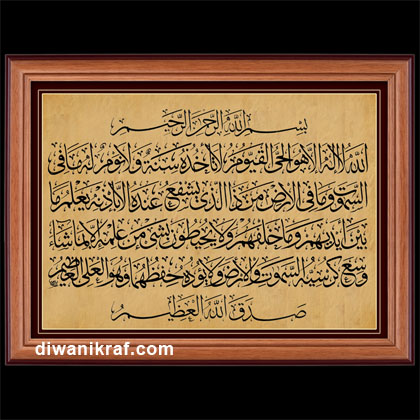 بسم الله الرحمن الرحيم
الله لا إله إلا هو الحي القيوم لا تأخذه سنة ولا نوم له ما في
السموت وما في الأرض من ذا الذي يشفع عنده إلا بإذنه يعلم ما
بين أيديهم وما خلفهم ولا يحيطون بشيء من علمه إلا بما شاء
وسع كرسيه السموت والأرض ولا يؤده حفظهما وهو العلي العظيم
صدق الله العظيم
diwanikraf.com